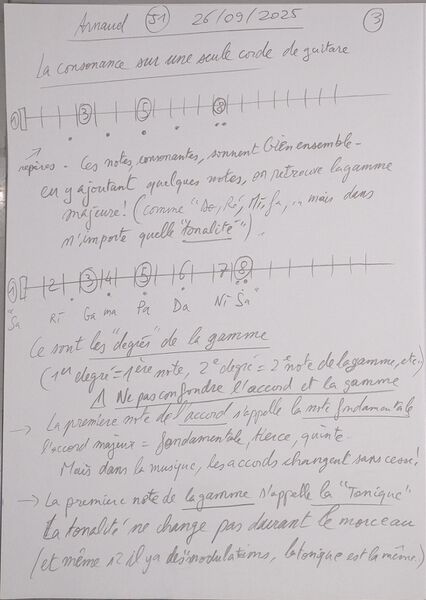 Arnaud 51 26/09/2025 3
La consonance sur une seule corde de guitare
1 3 5 8
repères - Ces notes, consonantes, sonnent bien ensemble -
en y ajoutant quelques notes, on retrouve la gamme
majeure! (comme "Do, Ré, Mi, Fa, .. mais dans
n'importe quelle "tonalité")..
1 2 3 4 5 6 7 8
"Sa Ri Ga ma Pa Da Ni Sa"
Ce sont les "degrés" de la gamme
(1er degré = 1ère note, 2e degré = 2e note de la gamme, etc.)
⚠ Ne pas confondre l'accord et la gamme
→ La première note de l'accord s'appelle la note fondamentale
l'accord majeur = fondamentale, tierce, quinte.
Mais dans la musique, les accords changent sans cesse!
→ La première note de la gamme s'appelle la "Tonique"
La tonalité ne change pas durant le morceau
(et même s'il y a des modulations, la tonique est la même.)